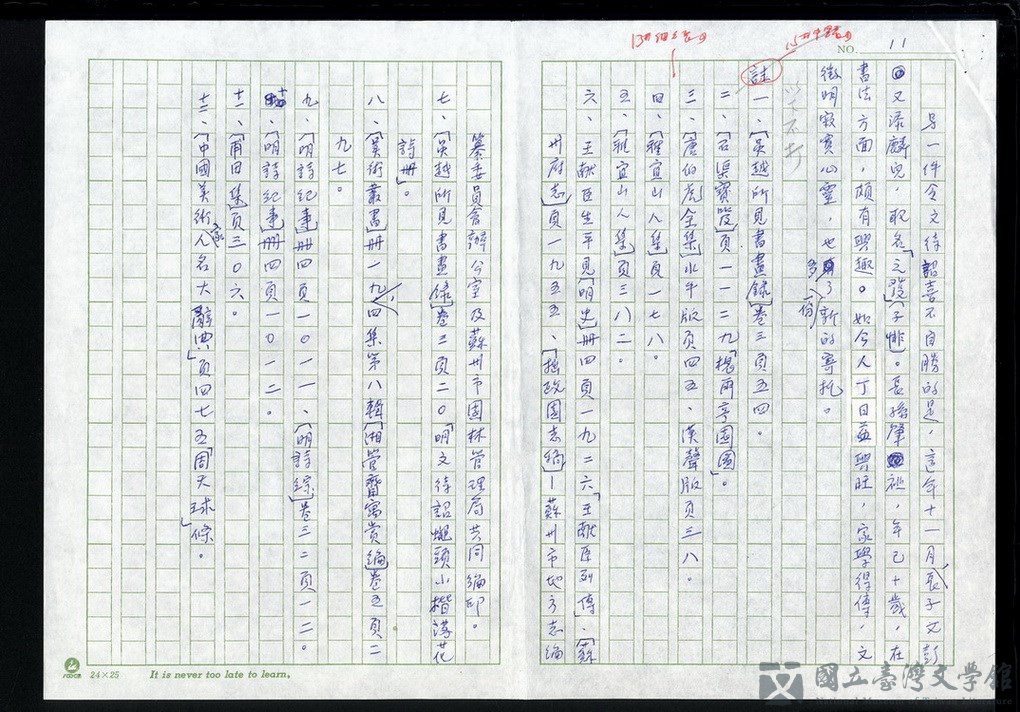 NO. 11
另一件令文待詔喜不自勝的是，這年十一月長子文彭
又添麟兒，取名「元發」子悱。長孫肇祉，年已十歲，在
書法方面，頗有興趣。如今人丁日益興旺，家學得傳，文
徵明寂寞心靈，也多了一份新的寄托。
註一、「吳越所見書畫錄」卷三頁五四。
二、「石渠寶笈」頁一一二九「槐雨亭園圖」。
三、「唐伯虎全集」水牛版頁四五、漢聲版頁三八。
四、「雅宜山人集」頁一七八。
五、「雅宜山人集」頁三八二。
六、王獻臣生平見「明史」册四頁一九二六「王獻臣列傳」、「蘇
州府志」頁一九五五、「拙政園志稿」—蘇州市地方志編
纂委員會辦公室及蘇州市園林管理局共同編印。
七、「吳越所見書畫錄」卷三頁二〇「明文待詔蠅頭小楷落花
詩册」。
八、「美術叢書」册一九/四集第八輯「湘管齋寓賞編」卷五頁二
九七。
九、「明詩紀事」册四頁一〇一一、「明詩綜」卷三二頁一二。
十、「明詩紀事」册四頁一〇一二。
十一、「甫田集」頁三〇六。
十二、「中國美術家人名大辭典」頁四七五「周天球」條。
24×25
It is never too late to learn.
國立臺灣文學館
National Museum of Taiwan Literature